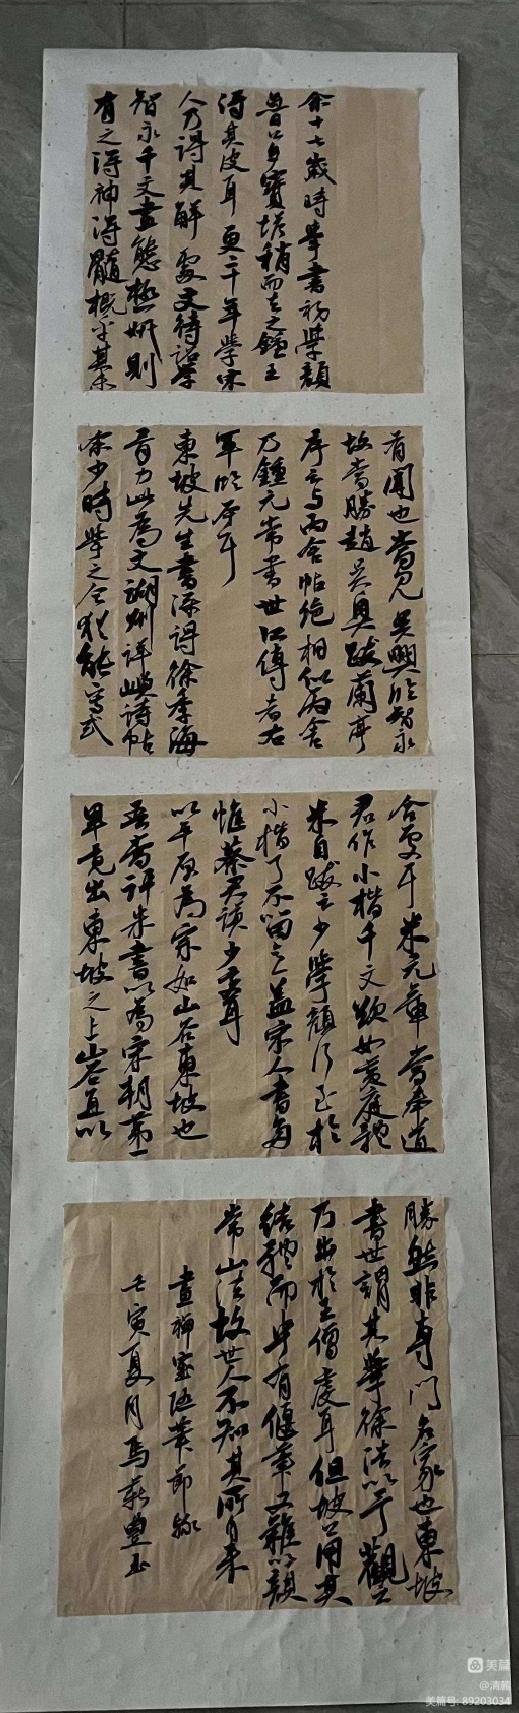 余十七岁時學書初學顔
魯公多寶塔稍而去之鍾王
得其皮耳更二十年學宋
人乃得其解處文待詔學
智永千文盡態極妍則
有之得神得髓概乎其未
有聞也嘗見吳興臨智永
故當勝趙吳興跋蘭亭
序云与丙舍帖絶相似丙舍
乃鍾元常書世所傳者右
軍臨本耳
東坡先生書深得徐季海
骨力此為文湖州洋嶼詩帖
余少時學之今猶能寫或
合處耳米元章嘗奉道
君作小楷千文欲如黄庭
米自跋云少學顔行至於
小楷了不留意蓋宋人書多
惟蔡君謨少變耳
以平原為宗如山谷東坡也
吾嘗評米書以為宋朝第一
畢竟出東坡之上山谷直以
勝然非專門名家也東坡
書世謂其學徐浩以予觀之
乃出於王僧虔耳但坡公用其
結體而中有偃筆又雜以顔
常山法故世人不知其所自来
畫禪室隨筆節録
壬寅夏月馬蘇豊書
美篇
@清麓
美篇号: 89203034